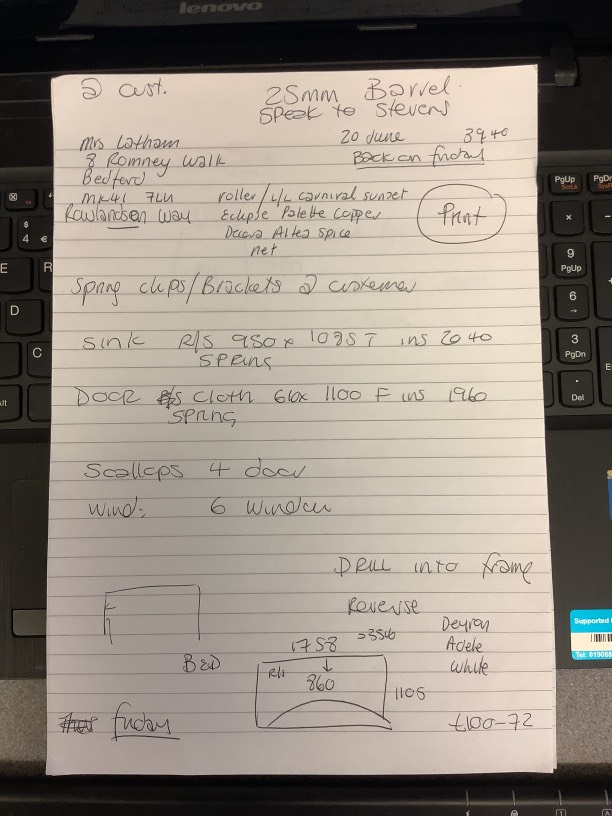 lenovo
@ cust.
25mm Barrel
Speak to Stevens
Mrs Latham
20 June 3940
8 Romney Walk
Back on friday
Bedford
MK41 7LU
roller/L/L carnival sunset
Rowlandson Way
Eclipse Palette Copper
Print
Decora Altea Spice
net
Spring clips/Brackets @ customer
Sink R/S 950 x 1085 T ins 2040
SPRING
DOOR cloth 610x 1100 F ins 1960
SPRING
Scallops 4 door
Wind: 6 Window
DRILL into frame
Reverse
1758 =3546
Deyron
Adele
White
B&D
R/S
860
1105
friday
£100-72
PgUp
$
4 €
E
R
D
C
Alt
x
9
PgUp
6
3
PgDn
.
Del
Supported